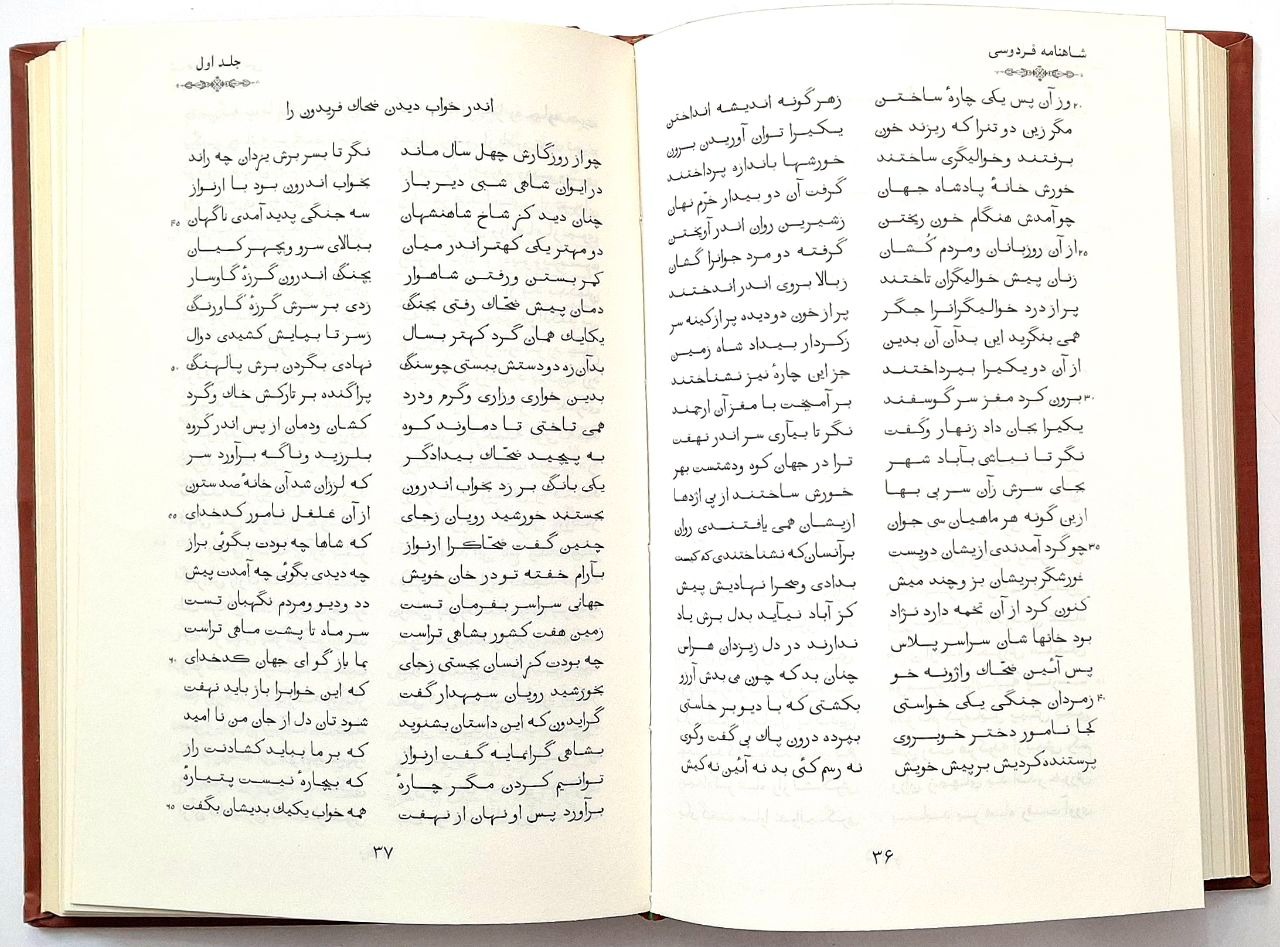 شاهنامه فردوسی
۲۰ وز آن پس یکی چارهٔ ساختن زهر گونه اندیشه انداختن
مگر زین دو تنرا که ریزند خون یکیرا توان آوریدن برون
برفتند و خوالیگری ساختند خورشها باندازه پرداختند
خورش خانهٔ پادشاه جهان گرفت آن دو بیدار خرّم نهان
چو آمدش هنگام خون ریختن زشیرین روان اندر آویختن
۲۵ از آن روزبانان ومردم کُشان گرفته دو مرد جوانرا گشان
زنان پیش خوالیگران تاختند زبالا بروی اندر اندختند
پر از درد خوالیگرانرا جگر پر از خون دو دیده پر از کینه سر
همی بنگرید این بدآن آن بدین زکردار بیداد شاه زمین
از آن دو یکیرا بپرداختند جز این چارهٔ نیز نشناختند
۳۰ برون کرد مغز سر گوسفند بر آمیخت با مغز آن ارجمند
یکیرا بجان داد زنهار وگفت نگر تا بیآری سر اندر نهفت
نگر تا نباشی بآباد شهر ترا در جهان کوه ودشتست بهر
بجای سرش زآن سر بی بها خورش ساختند از پی اژدها
ازین گونه هر ماهیان سی جوان ازیشان همی یافتندی روان
۳۵ چو گرد آمدندی ازیشان دویست برآنسان که نشناختندی که کیست
خورشگر بریشان بز وچند میش بدادی وصحرا نهادیش پیش
کنون کرد از آن تخمه دارد نژاد کز آباد نیآید بدل برش یاد
بود خانها شان سراسر پلاس ندارند در دل زیزدان هراس
پس آئین ضحّاك واژونه خو چنان بد که چون می بدش آرزو
۴۰ زمردان جنگی یکی خواستی بکشتی که با دیو بر خاستی
کجا نامور دختر خوبروی بپرده درون پاك بی گفت وگوی
پرستنده کردیش بر پیش خویش نه رسم کئی بد نه آئین نه کیش
۳۶
جلد اول
اندر خواب دیدن ضحاك فریدون را
چو از روزگارش چهل سال ماند نگر تا بسر برش یزدان چه راند
در ایوان شاهی شبی دیر باز بخواب اندرون بود با ارنواز
چنان دید کز شاخ شاهنشهان سه جنگی پدید آمدی ناگهان ۴۵
دو مهتر یکی کهتر اندر میان ببالای سرو وبچهر کیان
کمر بستن ورفتن شاهوار بچنگ اندرون گرزهٔ گاوسار
دمان پیش ضحّاك رفتی بجنگ زدی بر سرش گرزهٔ گاورنگ
یکایك همان گرد کهتر بسال زسر تا بپایش کشیدی دوال
بدآن زه دو دستش ببستی چو سنگ نهادی بگردن برش پالهنگ ۵۰
بدین خواری وزاری وگرم ودرد پراگنده بر تارکش خاك وگرد
همی تاختی تا دماوند کوه کشان ودمان از پس اندر گروه
به پیچید ضحّاك بیدادگر بلرزید وناگه برآورد سر
یکی بانگ بر زد بخواب اندرون که لرزان شد آن خانهٔ صد ستون
بجستند خورشید رویان زجای از آن غلغل نامور کدخدای ۵۵
چنین گفت ضحّاکرا ارنواز که شاها چه بودت بگوئی براز
بآرام خفته تو در خان خویش چه دیدی بگوئی چه آمدت پیش
جهانی سراسر بفرمان تست دد ودیو ومردم نگهبان تست
زمین هفت کشور بشاهی تراست سر ماه تا پشت ماهی تراست
چه بودت کز انسان بجستی زجای بما باز گو ای جهان کدخدای ۶۰
بخورشید رویان سپهدار گفت که این خوابرا باز باید نهفت
گرایدون که این داستان بشنوید شود تان دل از جان من نا امید
بشاهی گرانمایه گفت ارنواز که بر ما بباید کشادنت راز
توانیم کردن مگر چارهٔ که بیچارهٔ نیست پتیارهٔ
برآورد پس او نهان از نهفت همه خواب یکیك بدیشان بگفت ۶۵
۳۷